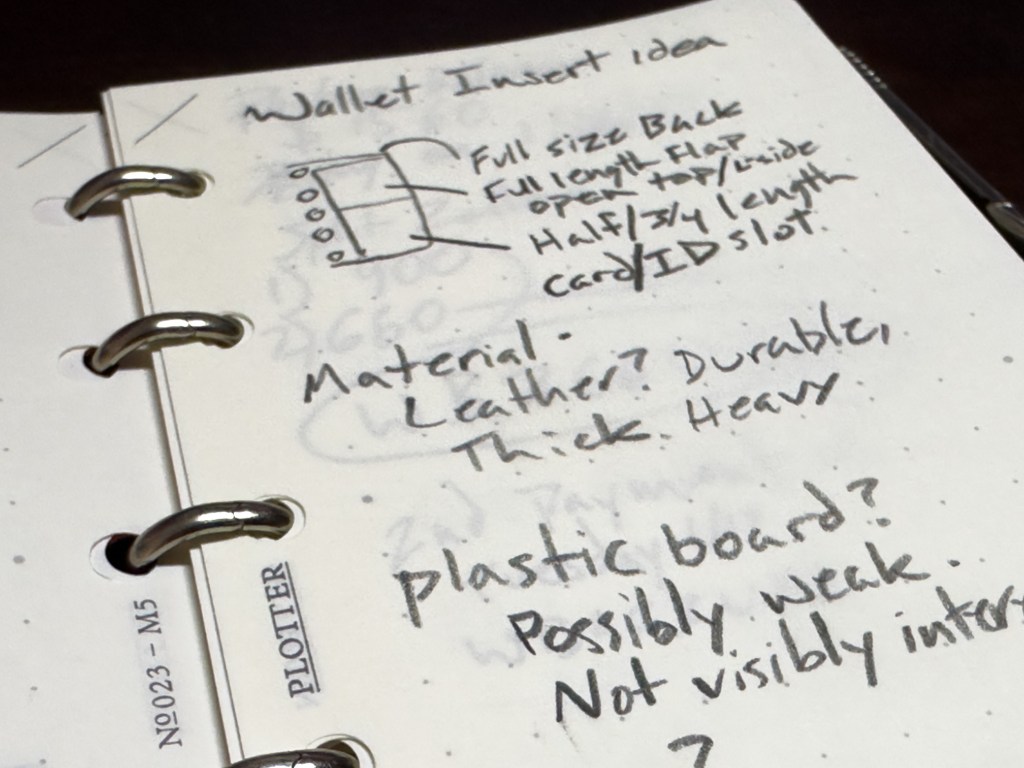 Wallet Insert idea
Full size Back
Full length Flap
open top/inside
Half/3/4 length
card/ID slot.
Material -
Leather? Durable,
Thick. Heavy
plastic board?
Possibly weak.
Not visibly inter
?
PLOTTER
№023 - M5